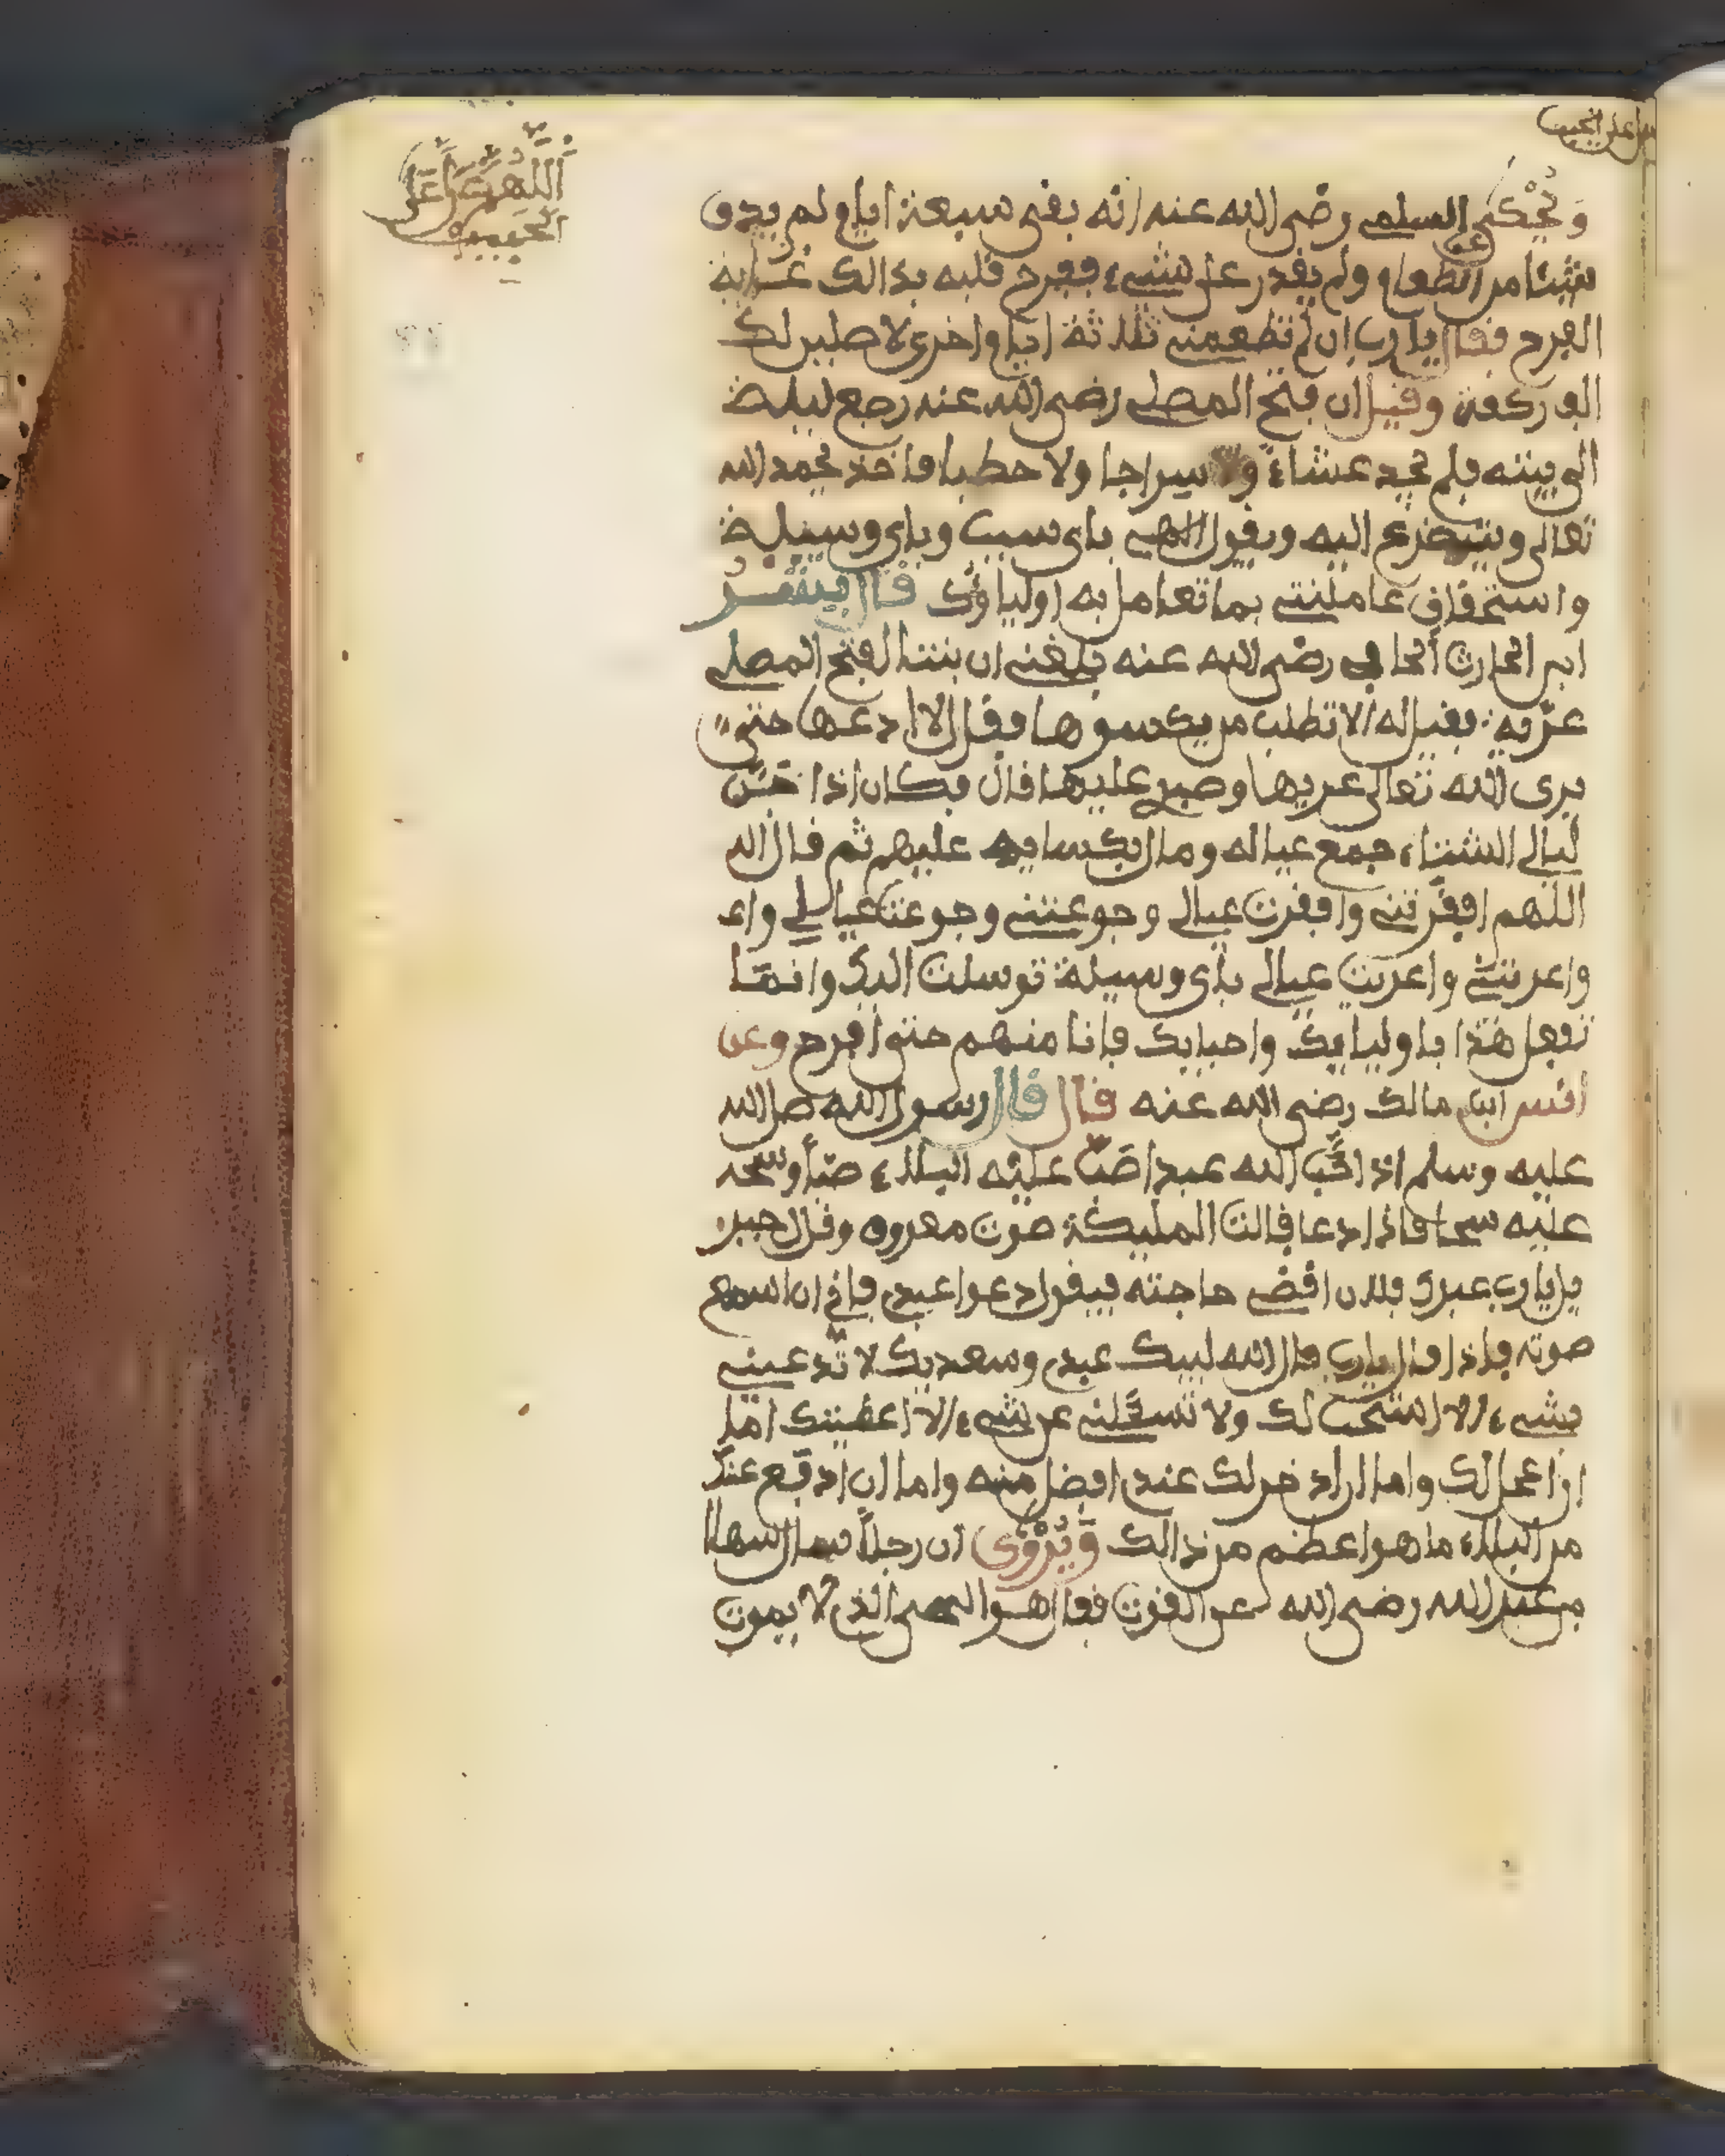 اللهم صل على
الحبيب
صل على الحبيب
وَيُحْكَى عن السلمى رضى الله عنه انه بقى سبعة ايام لم يدق
شيئا من الطعام ولم يقدر على شىء ففرح قلبه بذالك غاية
الفرح فقال يا رب ان لم تطعمنى ثلاثة ايام اخرى لاصلين لك
الف ركعة وقيل ان فتح الموصلى رضى الله عنه رجع ليلة
الى بيته فلم يجد عشاء ولا سراجا ولا حطبا فاخذ يحمد الله
تعالى ويتضرع اليه ويقول الهى باى سبب وباى وسيلة
واستحقاق عاملتنى بما تعامل به اولياؤك قال بشر
ابن الحارث الحافى رضى الله عنه بلغنى ان بنتا لفتح المصلى
عرية فقيل له الا تطلب من يكسوها فقال لا ادعها حتى
يرى الله تعالى عريها وصبرى عليها قال فكان اذا
ليالى الشتاء جمع عياله ومال بكسايه عليهم ثم قال الل
اللهم افقرتنى وافقرت عيالى وجوعتنى وجوعت عيالى واع
واعريتنى واعريت عيالى باى وسيلة توسلت اليك وانما
تفعل هذا باوليايك واحبابك فانا منهم حتى افرح وعن
انس ابن مالك رضى الله عنه قال قال رسول الله صلى الله
عليه وسلم اذا احب الله عبدا صب عليه البلاء صبا وسحه
عليه سحا فاذا دعا قالت المليكة صوت معروف وقال جبر
يل يا رب عبدك فلان اقض حاجته فيقول دعوا عبدى فانى ان اسمع
صوته فاذا قال يا رب قال الله لبيك عبدى وسعديك لا تدعينى
بشىء الا استجب لك ولا تسئلنى عن شىء الا اعطيتك اما
ان اعجل لك واما ان ادخر لك عندى افضل منه واما ان ادفع عنك
من البلاء ما هو اعظم من ذالك وَيُرْوَى ان رجلا سال سهلا
بن عبد الله رضى الله عن القوت فقال هو الحى الذى لا يموت